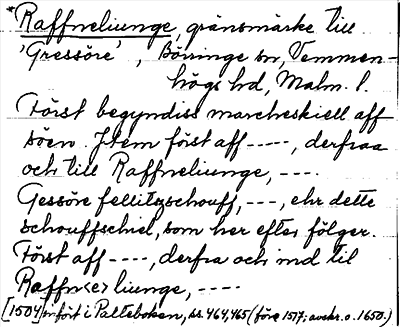 *Raffneliunge, gränsmärke till
'Gressöre', Börringe sn, Vemmen-
högs hd, Malm. l.
Först begyndiss marcheskiell aff
söen. Jtem först aff -----, derfraa
och till Raffneliunge, ----.
Gessöre fellitzschouff, ---, ehr dette
schouffschiel, som her efter fölger.
Först aff ----, derfra och ind til
Raffn<e>liunge, ----
[1504] infört i Palteboken, ss. 464, 465 (före 1517; avskr. o. 1650.)